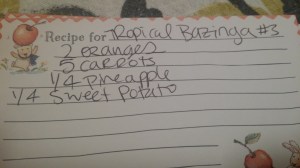 Recipe for Tropical Bazinga #3
2 oranges
5 carrots
1/4 Pineapple
1/4 Sweet Potato